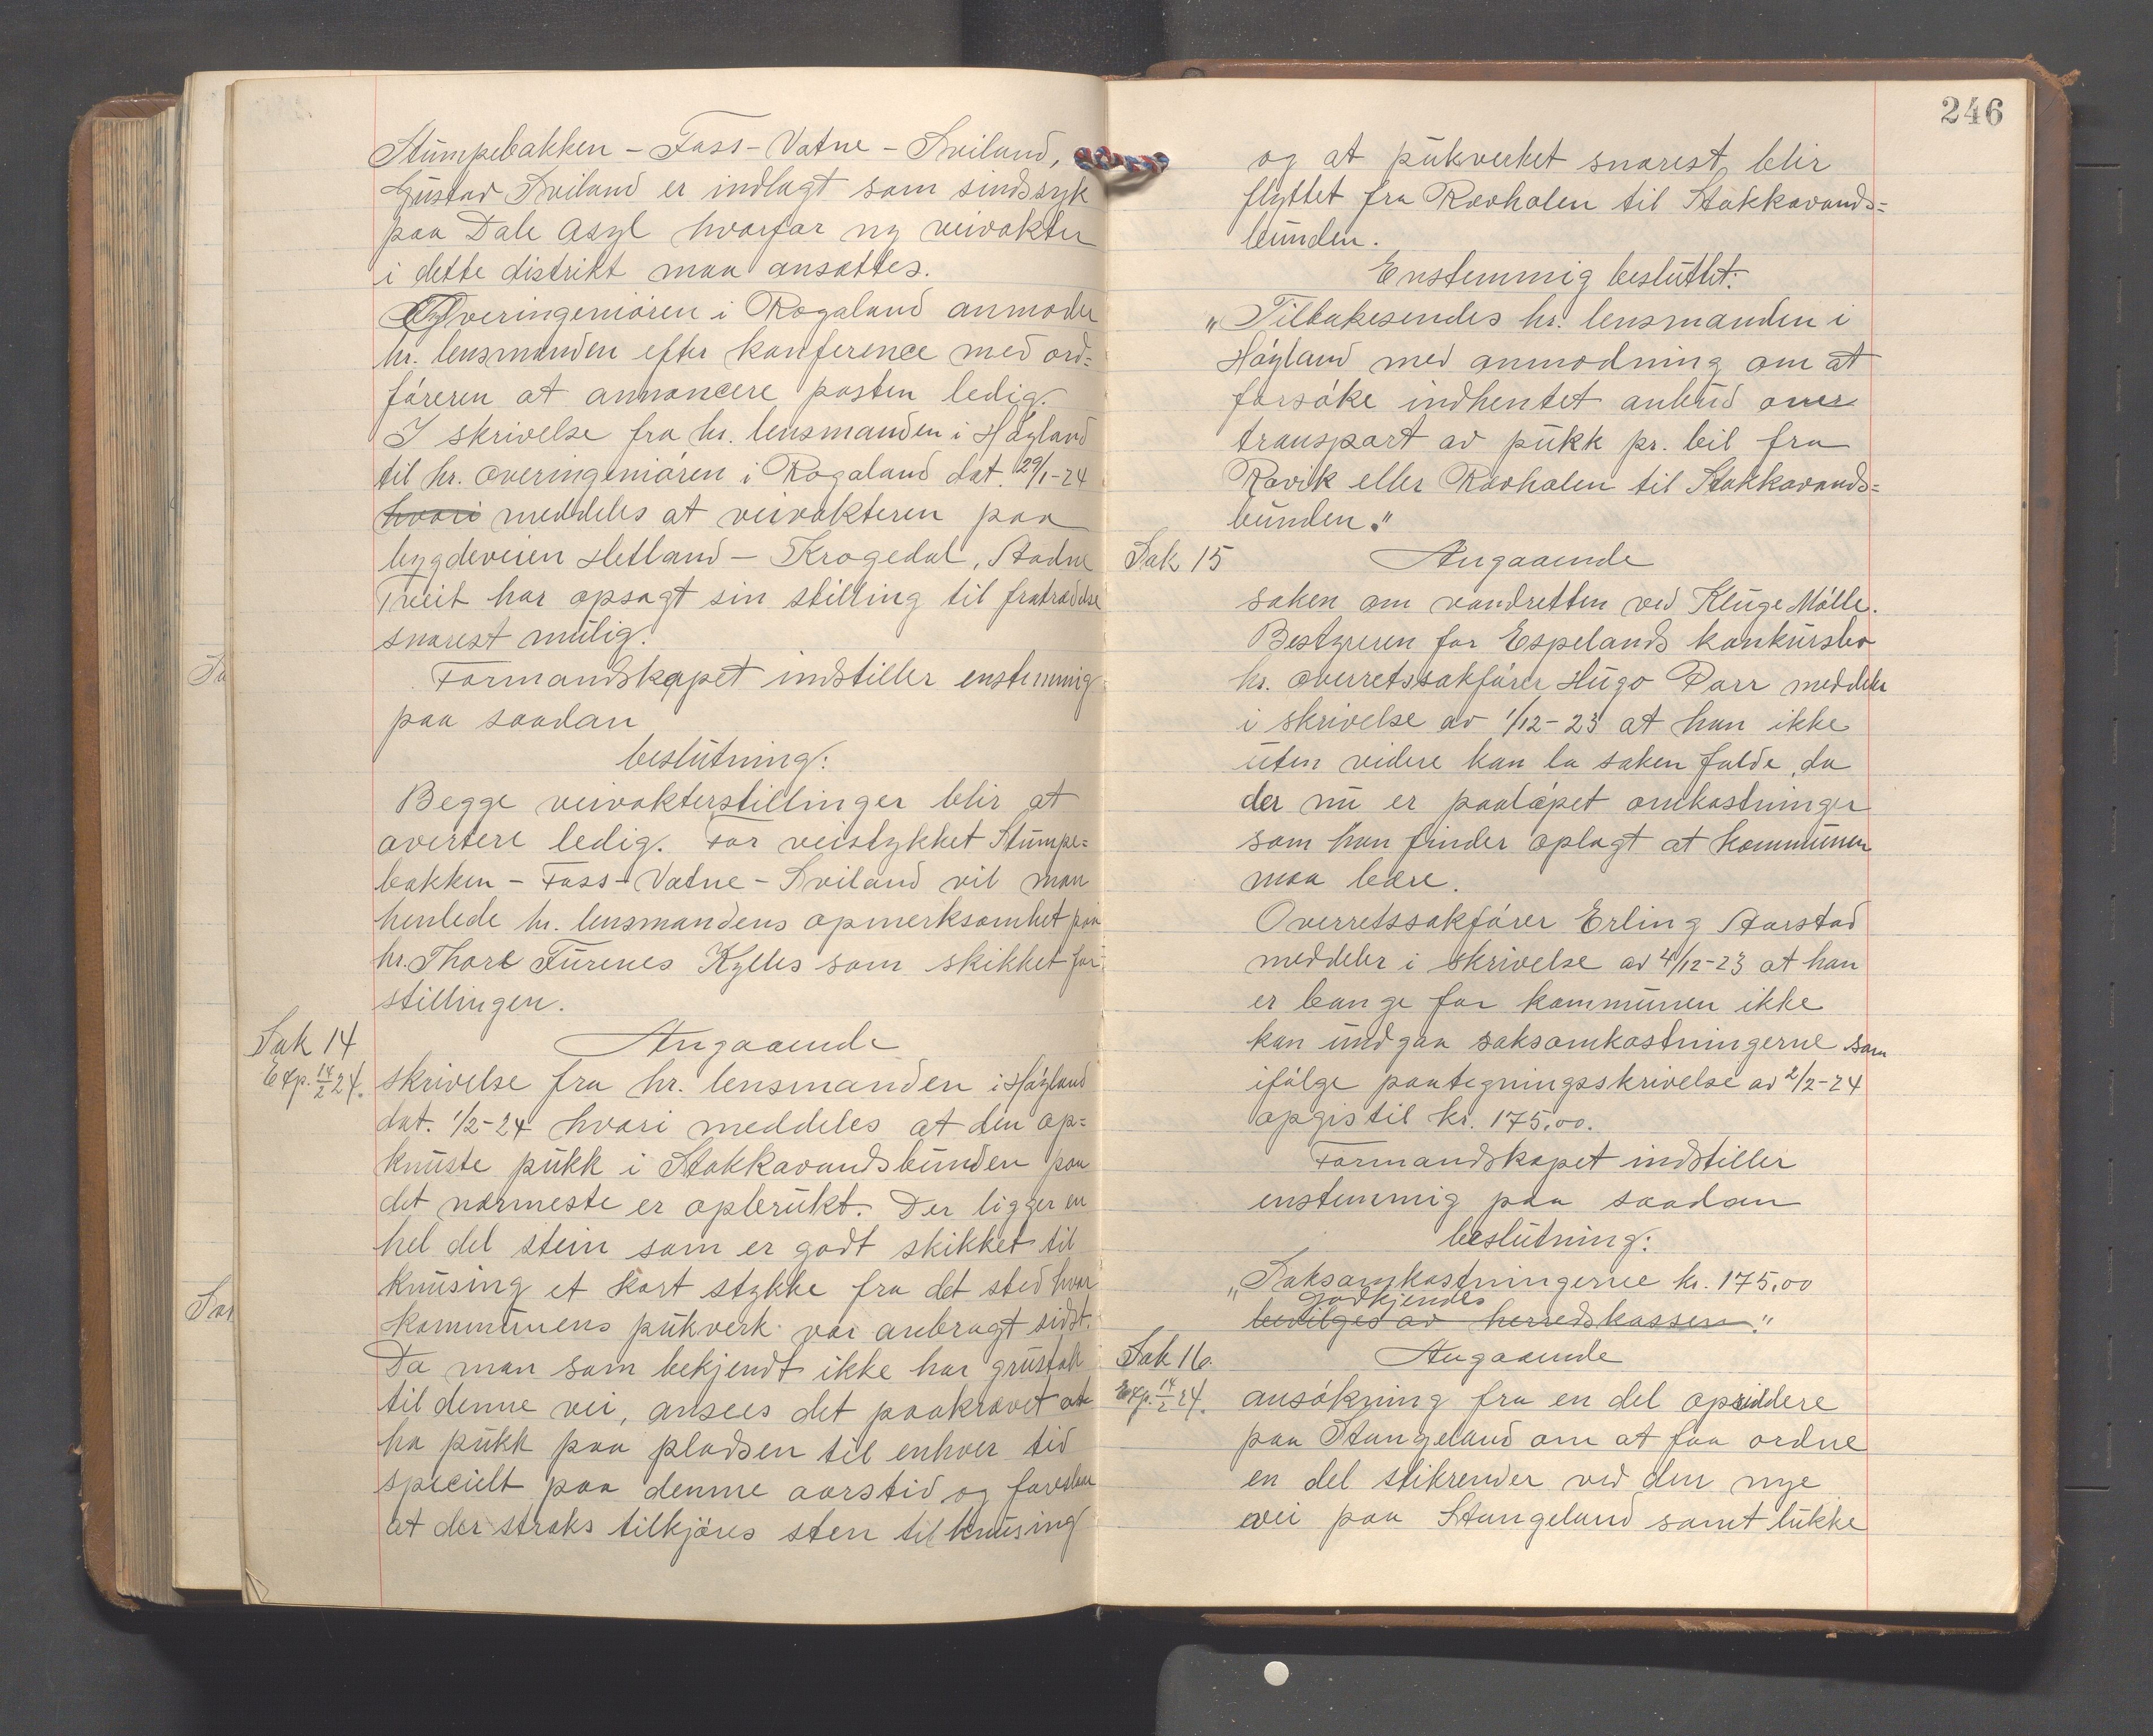 Stumpebakken - Foss - Vatne - Sviland,
Gustav Sviland er indlagt som sindssyk
paa Dale Asyl hvorfor ny veivokter
i dette distrikt maa ansættes.
Overingeniøren i Rogaland anmoder
hr. lensmanden efter konference med ord=
føreren at annoncere posten ledig.
I skrivelse fra hr. lensmanden i Høyland
til hr. overingeniøren i Rogaland dat. 29/1-24
hvori meddeles at veivokteren paa
bygdeveien Hetland - Krogedal, Aadne
Tveit har opsagt sin stilling til fratrædelse
snarest mulig.
Formandskapet indstiller enstemmig
paa saadan
beslutning:
Begge veivokterstillinger blir at
avertere ledig. For veistykket Stumpe=
bakken - Foss - Vatne - Sviland vil man
henlede hr. lensmandens opmerksomhet paa
hr. Thore Furenes Kylles som skikket for
stillingen.
Sak 14
Angaaende
Exp. 14/2 24.
skrivelse fra hr. lensmanden i Høyland
dat. 1/2-24 hvori meddeles at den op=
knuste pukk i Stokkavandsbunden paa
det nærmeste er opbrukt. Der ligger en
hel del stein som er godt skikket til
knusing et kort stykke fra det sted hvor
kommunens pukverk var anbragt sidst.
Da man som bekjendt ikke har grustak
til denne vei, ansees det paakrævet at
ha pukk paa pladsen til enhver tid
specielt paa denne aarstid og foreslaar
at der straks tilkjøres sten til knusing
246
og at pukverket snarest blir
flyttet fra Rovholen til Stokkavands=
bunden.
Enstemmig besluttet:
"Tilbakesendes hr. lensmanden i
Høyland med anmodning om at
forsøke indhentet anbud over
transport av pukk pr. bil fra
Rovik eller Rovholen til Stokkavands=
bunden."
Sak 15
Angaaende
saken om vandretten ved Kluge Mølle.
Bestyreren for Espelands konkursbo
hr. overretssakfører Hugo Parr meddeler
i skrivelse av 1/12-23 at han ikke
uten videre kan la saken falde, da
der nu er paaløpet omkostninger
som han finder oplagt at kommunen
maa bære.
Overretssakfører Erling Aarstad
meddeler i skrivelse av 4/12-23 at han
er bange for kommunen ikke
kan undgaa saksomkostningerne som
ifølge paategningsskrivelse av 2/2-24
opgis til kr. 175,00.
Formandskapet indstiller
enstemmig paa saadan
beslutning:
"Saksomkostningerne kr. 175,00
godkjendes
bevilges av herredskassen."
Sak 16.
Angaaende
Exp. 14/2 24.
ansøkning fra en del opsiddere
paa Stangeland om at faa ordne
en del stikrender ved den nye
vei paa Stangeland samt lukke